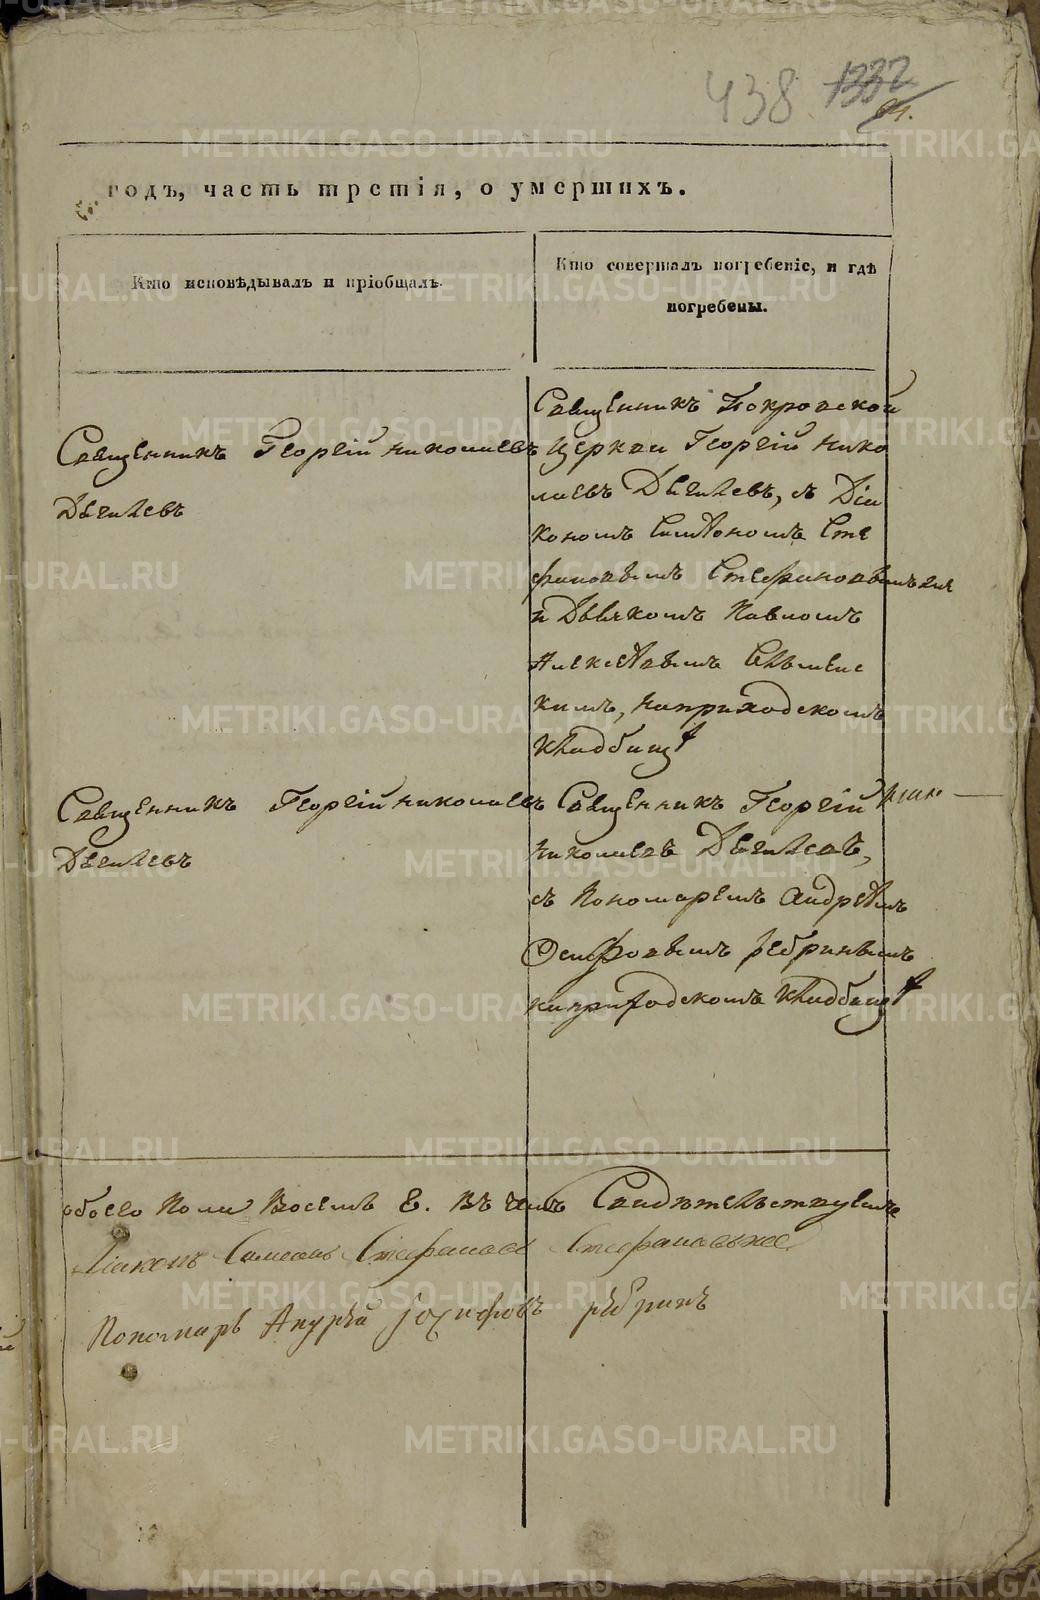 438 1332
годъ, часть третія, о умершихъ.
Кто исповѣдывалъ и пріобщалъ.
Кто совершалъ погребеніе, и гдѣ
погребены.
Священникъ Георгій Николаевъ
Дягилевъ
Священникъ Покровской
церкви Георгій Нико
лаевъ Дягилевъ, съ Діа
кономъ Симеономъ Сте
фановымъ Стефановымъ
и Дьячкомъ Павломъ
Алексѣевымъ
кимъ, наприходскомъ
кладбищѣ
Священникъ Георгій Николаевъ
Дягилевъ
Священникъ Георгій
Николаевъ Дягилевъ,
съ Пономаремъ Андреемъ
Осиповымъ Ребринымъ
наприходскомъ кладбищѣ
обоего пола Восемь 8. Въ чемъ Свидѣтельствуемъ
Діаконъ Симеонъ Стефановъ Стефановыхъ
Пономарь Андрей Іосифовъ Ребринъ
METRIKI.GASO-URAL.RU